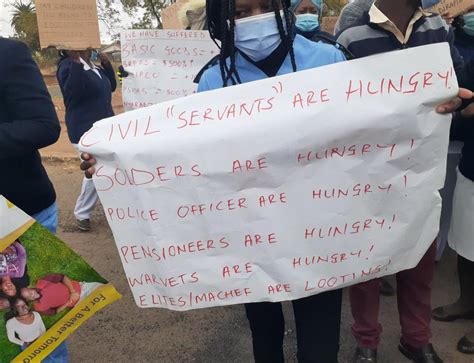 WE HAVE
SUFFERED
BASIC GOODS ↑
500%!
CIVIL "SERVANTS" ARE HUNGRY!
SOLDERS ARE HUNGRY!
POLICE OFFICER ARE HUNGRY!
PENSIONEERS ARE HUNGRY!
WARVETS ARE HUNGRY!
ELITES/MACHEF ARE LOOTING!
For A Better Tomorro